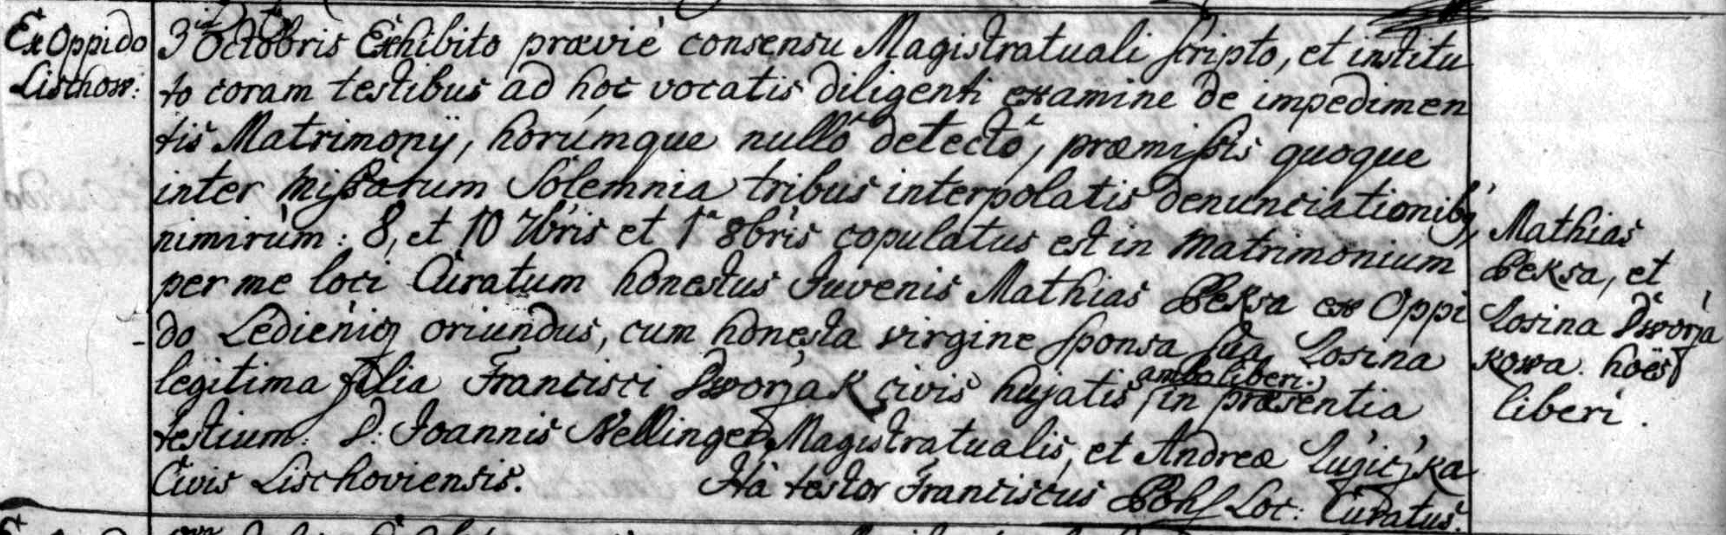 Ex Oppido
Lischow:
3 Octobris Exhibito prævié consensu Magistratuali scripto, et institu
to coram testibus ad hoc vocatis diligenti examine de impedimen
tis Matrimonÿ, horúmque nullô detectô, præmissis quoque
inter Missarum Solemnia tribus interpolatis denunciationib9,
nimirúm: 8, et 10 7bris et 1a 8bris copulatus est in Matrimonium
per me loci Curatum honestus Juvenis Mathias Peksa ex Oppi
do oriundus, cum honesta virgine sponsa sua Rosina
legitima filia Francisci Dworjak civis hujatis in præsentia
ambo liberi.
testium: D: Joannis Nellinger Magistratualis, et Andreæ
Civis Lischoviensis. Ità testor Franciscus Loc: Curatus.
Mathias
Peksa, et
Rosina Dworja
kowa.
liberi.